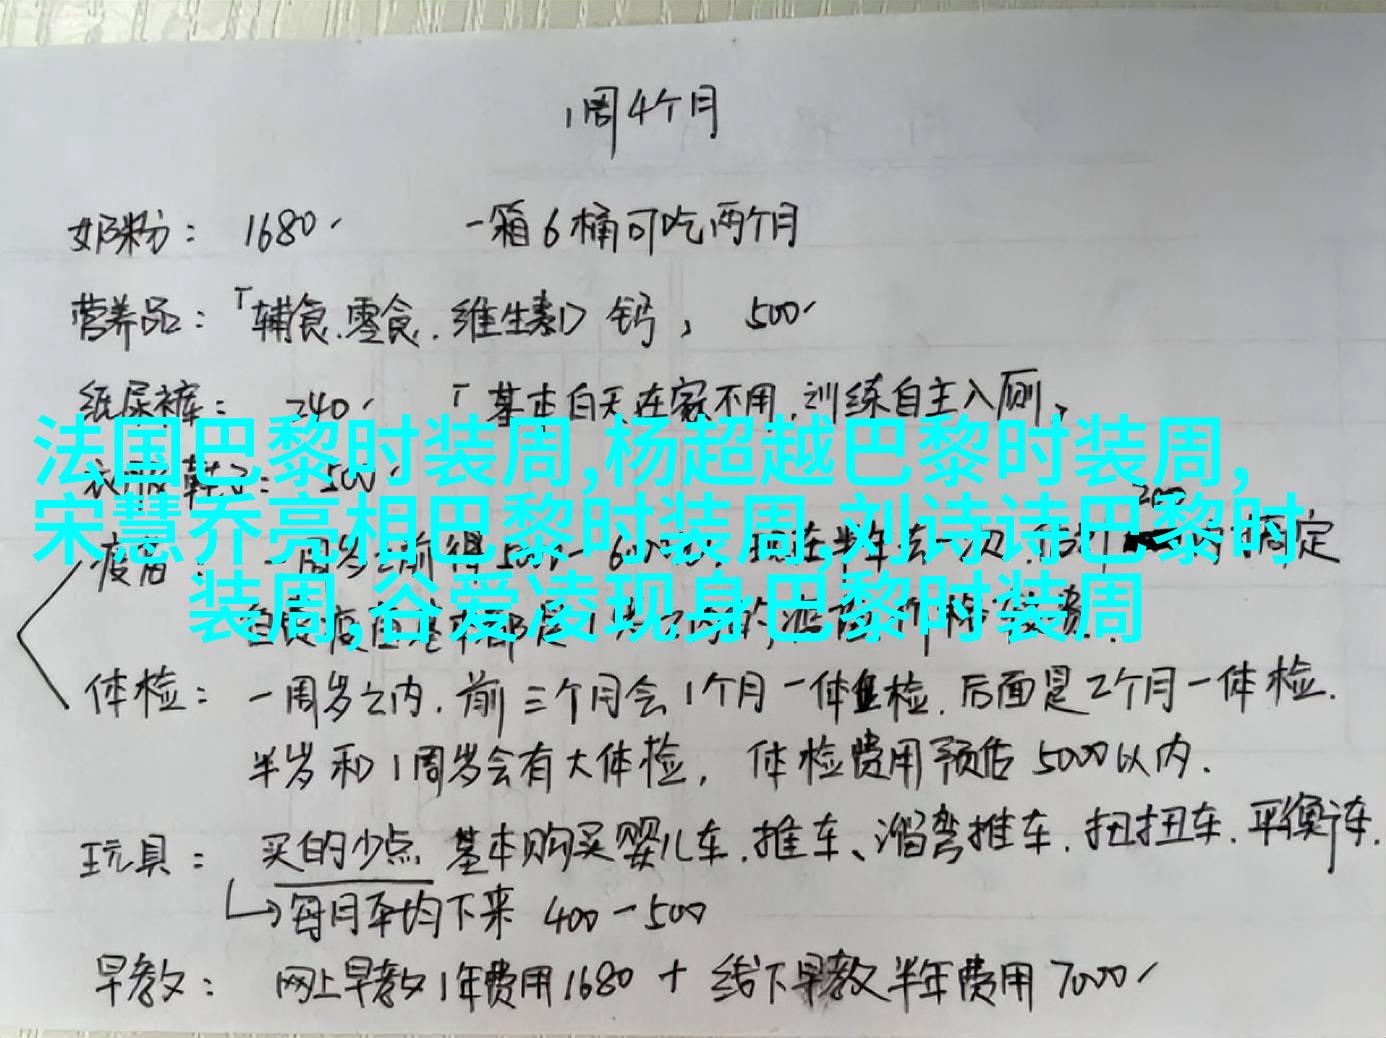 1周4个月
奶粉： 1680、 一箱6桶可吃两个月
营养品：「辅食.零食.维生素D 钙, 500、
纸尿裤： 240、 「基本白天在家不用.训练自主入厕,
法国巴黎时装周,杨超越巴黎时装周,
衣服鞋子： 500
宋慧乔亮相巴黎时装周,刘诗诗巴黎时
疫苗： 一周岁之前得500-6000.
装周,谷爱凌现身巴黎时装周
体检： 一周岁之内.前三个月会1个月一体检.后面是2个月一体检.
半岁和1周岁会有大体检, 体检费用预估5000以内.
玩具： 买的少点 基本购买婴儿车.推车、溜弯推车.扭扭车.平衡车.
每月平均下来 400-500
早教： 网上早教1年费用1680 + 线下早教半年费用7000、